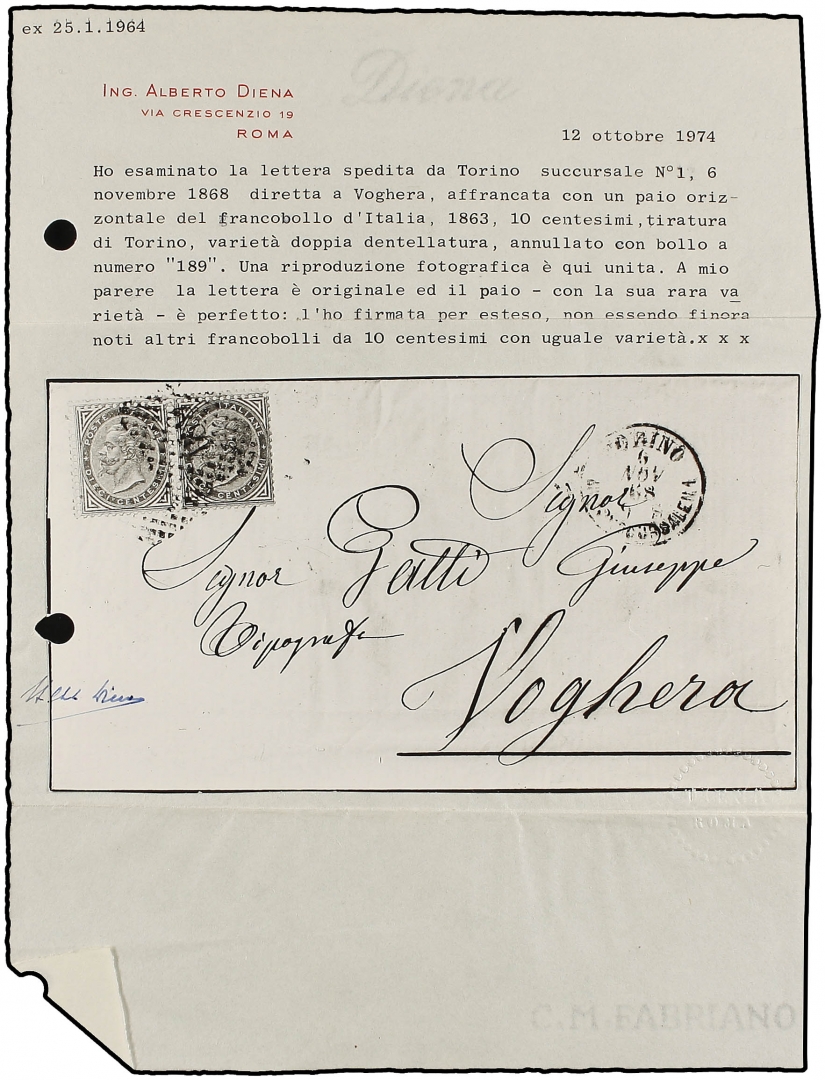 ex 25.1.1964
Diena
ING. ALBERTO DIENA
VIA CRESCENZIO 19
ROMA
12 ottobre 1974
Ho esaminato la lettera spedita da Torino succursale N°1, 6
novembre 1868 diretta a Voghera, affrancata con un paio oriz-
zontale del francobollo d'Italia, 1863, 10 centesimi, tiratura
di Torino, varietà doppia dentellatura, annullato con bollo a
numero "189". Una riproduzione fotografica è qui unita. A mio
parere la lettera è originale ed il paio - con la sua rara va
rietà - è perfetto: l'ho firmata per esteso, non essendo finora
noti altri francobolli da 10 centesimi con uguale varietà.x x x
POSTE ITALIANE
DIECI CENTESIMI
TORINO
6
NOV
68
Signor
Signor Gatti Giuseppe
Tipografo
Voghera
ROMA
C.M.FABRIANO